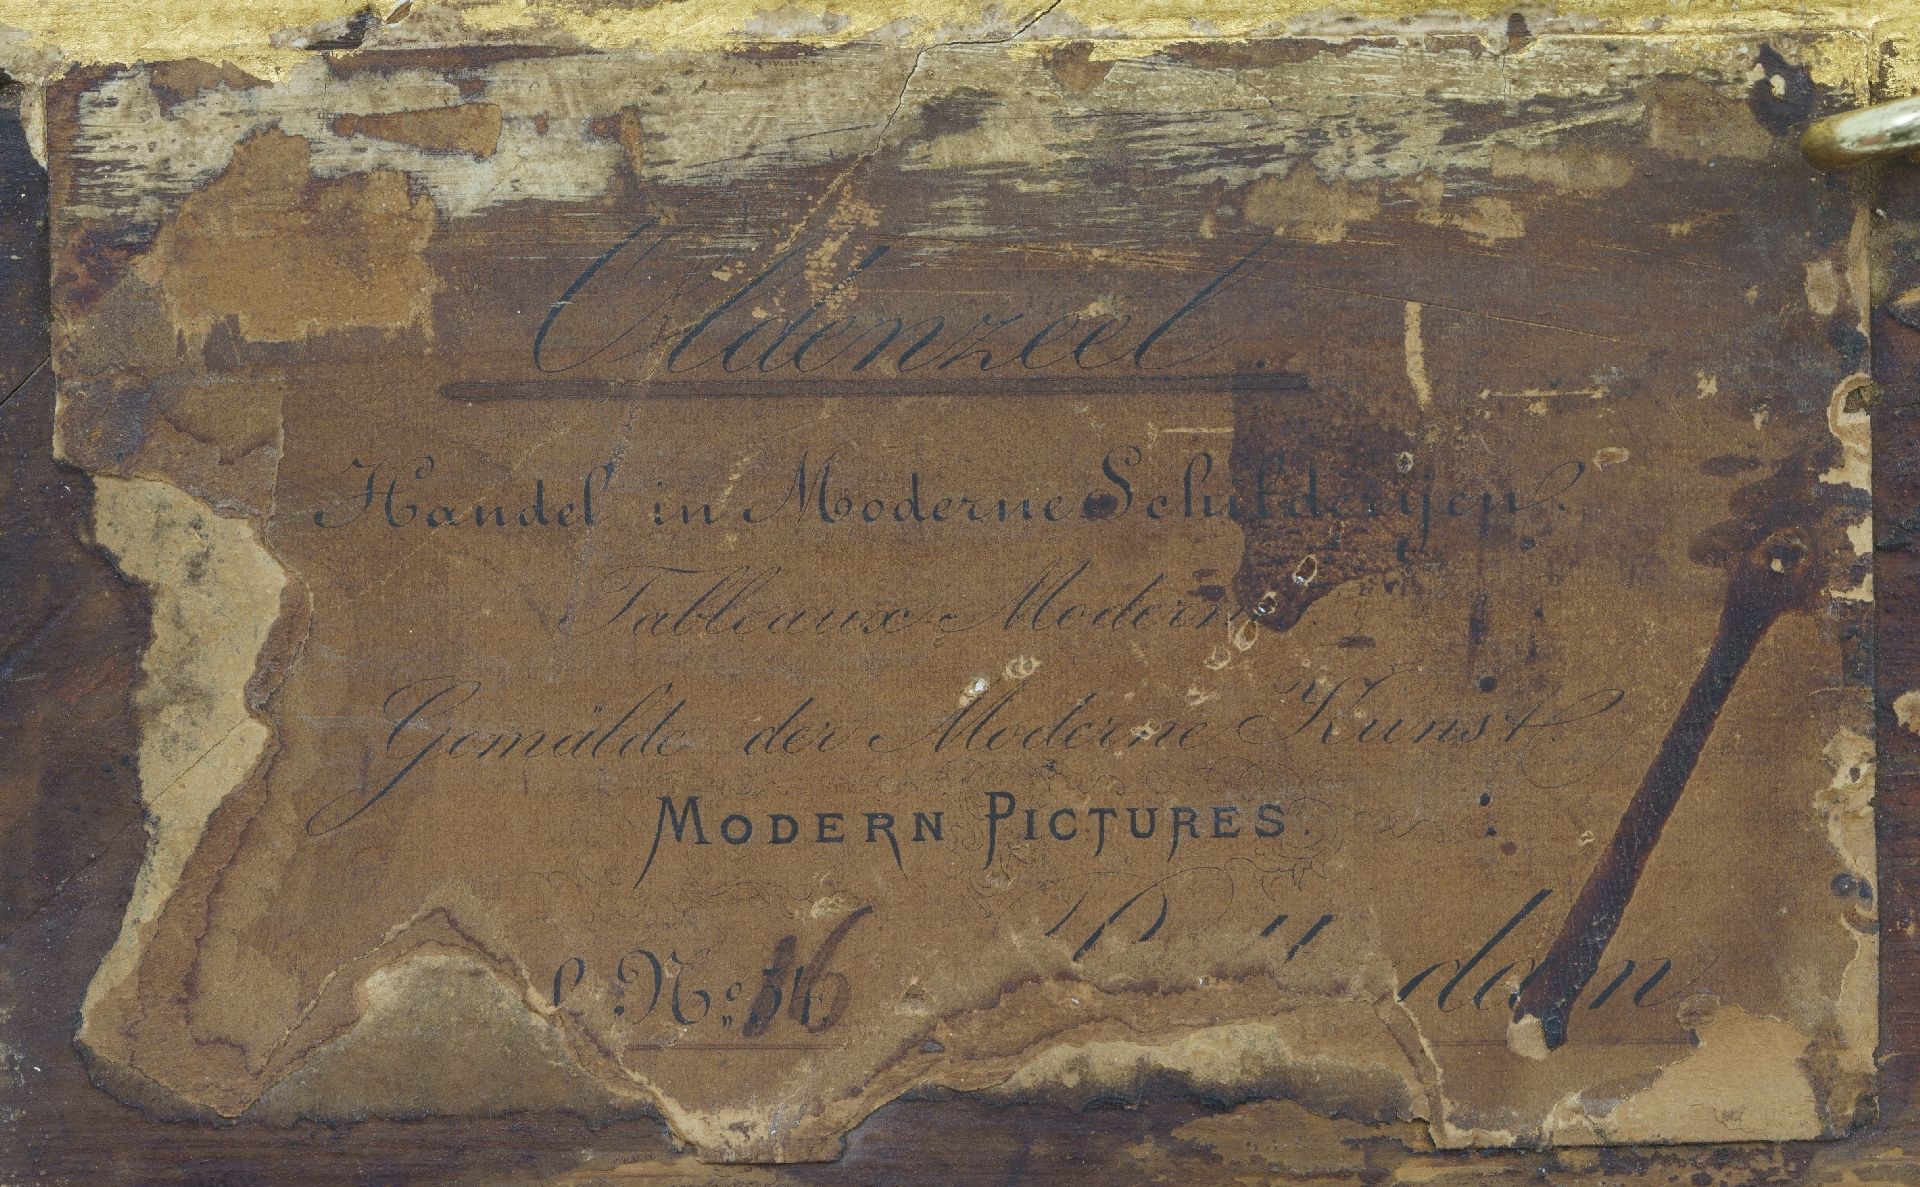 Oldenzeel.
Handel in Moderne Schilderyen.
Tableaux Modern
Gemälde der Moderne Kunst.
MODERN PICTURES.
l. No. 16
dam